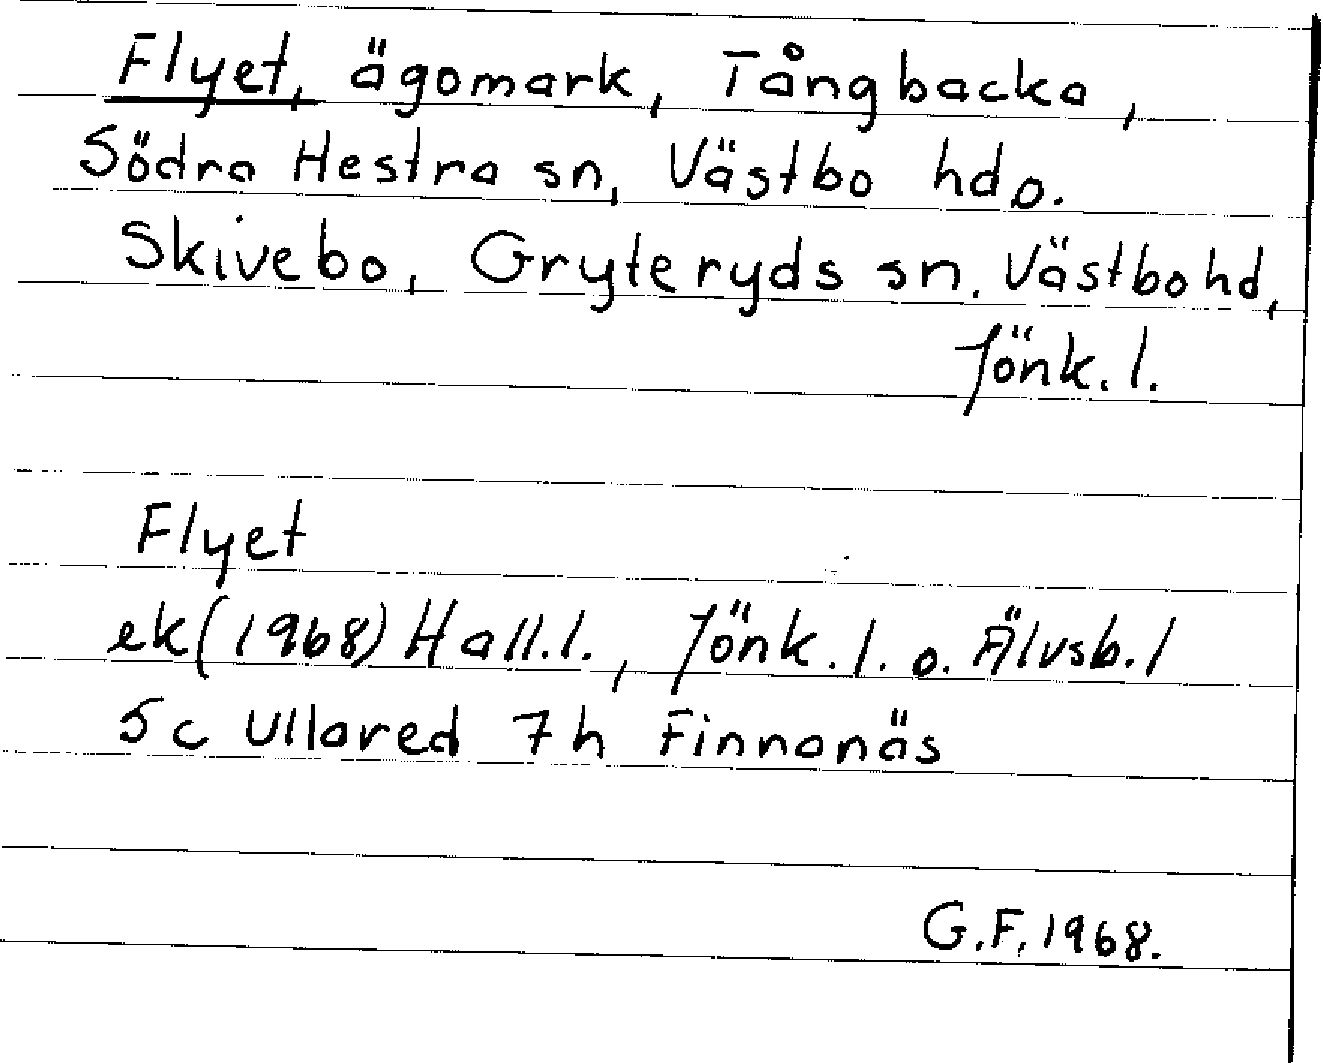 Flyet, ägomark, Tångbacka,
Södra Hestra sn, Västbo hd o.
Skivebo, Gryteryds sn. Västbo hd,
Jönk. l.
Flyet
ek (1968) Hall.l., Jönk. l. o. Älvsb. l
5 c Ullared 7 h Finnanäs
G.F. 1968.